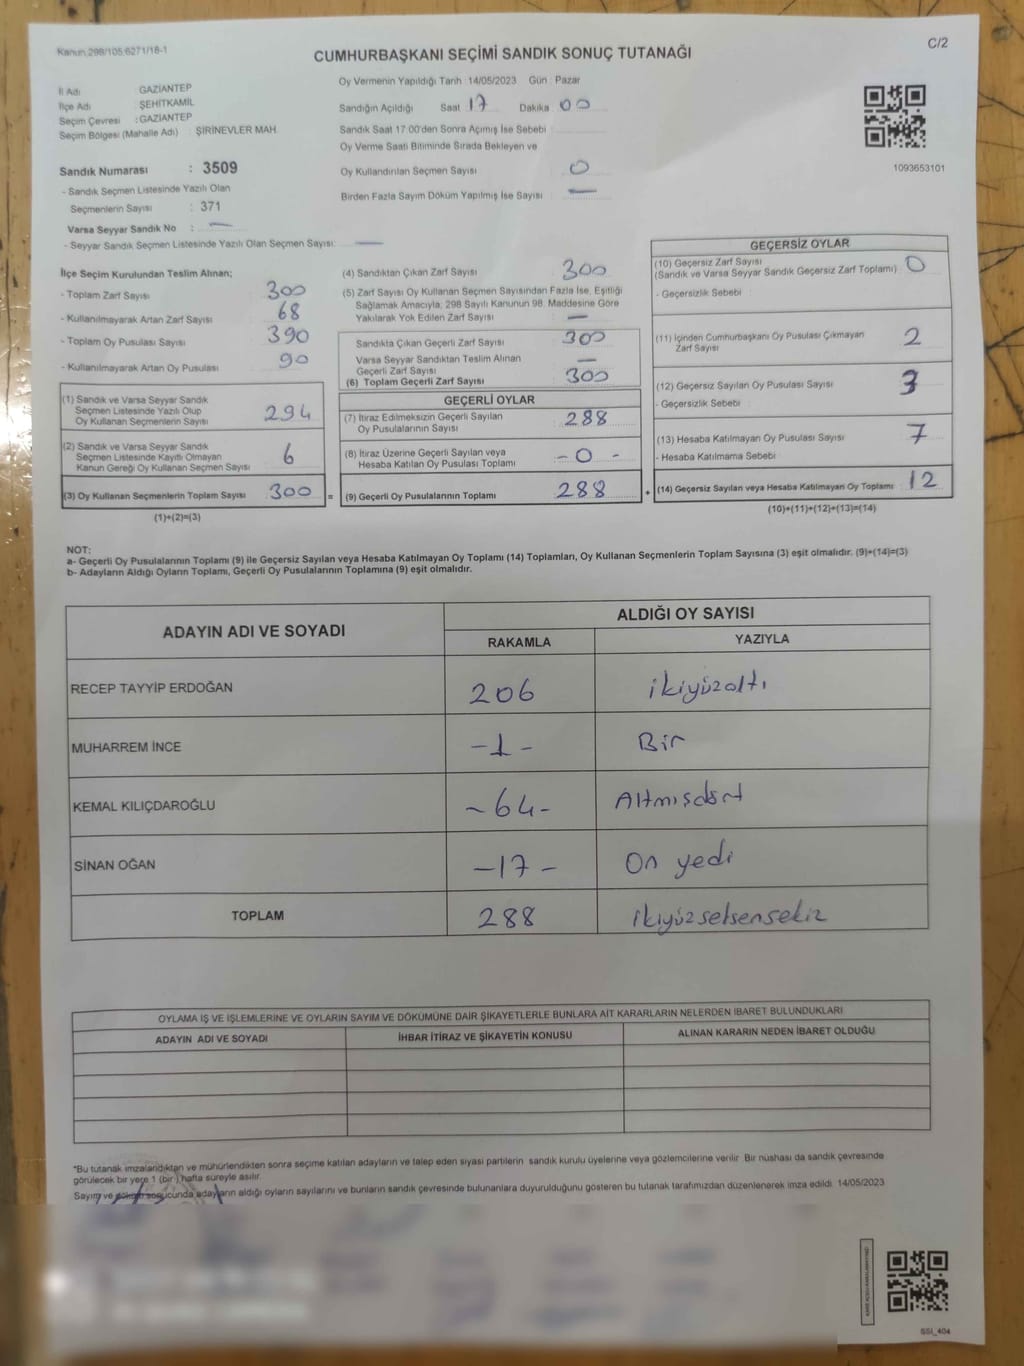 Kanun:298/105:6271/18-1
C/2
CUMHURBAŞKANI SEÇİMİ SANDIK SONUÇ TUTANAĞI
İl Adı GAZİANTEP
İlçe Adı : ŞEHİTKAMİL
Seçim Çevresi : GAZİANTEP
Seçim Bölgesi (Mahalle Adı) : ŞİRİNEVLER MAH.
Sandık Numarası : 3509
- Sandık Seçmen Listesinde Yazılı Olan
Seçmenlerin Sayısı : 371
Varsa Seyyar Sandık No : —
- Seyyar Sandık Seçmen Listesinde Yazılı Olan Seçmen Sayısı: —
Oy Vermenin Yapıldığı Tarih 14/05/2023 Gün Pazar
Sandığın Açıldığı Saat 17 Dakika 00
Sandık Saat 17:00'den Sonra Açımış İse Sebebi :
Oy Verme Saati Bitiminde Sırada Bekleyen ve
Oy Kullandırılan Seçmen Sayısı 0
Birden Fazla Sayım Döküm Yapılmış İse Sayısı : —
1093653101
İlçe Seçim Kurulundan Teslim Alınan;
- Toplam Zarf Sayısı 300
- Kullanılmayarak Artan Zarf Sayısı 68
- Toplam Oy Pusulası Sayısı 390
- Kullanılmayarak Artan Oy Pusulası 90
(1) Sandık ve Varsa Seyyar Sandık
Seçmen Listesinde Yazılı Olup
Oy Kullanan Seçmenlerin Sayısı 294
(2) Sandık ve Varsa Seyyar Sandık
Seçmen Listesinde Kayıtlı Olmayan
Kanun Gereği Oy Kullanan Seçmen Sayısı 6
(3) Oy Kullanan Seçmenlerin Toplam Sayısı 300 =
(1)+(2)=(3)
(4) Sandıktan Çıkan Zarf Sayısı 300
(5) Zarf Sayısı Oy Kullanan Seçmen Sayısından Fazla İse, Eşitliği
Sağlamak Amacıyla, 298 Sayılı Kanunun 98. Maddesine Göre
Yakılarak Yok Edilen Zarf Sayısı : —
Sandıkta Çıkan Geçerli Zarf Sayısı 300
Varsa Seyyar Sandıktan Teslim Alınan
Geçerli Zarf Sayısı —
(6) Toplam Geçerli Zarf Sayısı 300
GEÇERLİ OYLAR
(7) İtiraz Edilmeksizin Geçerli Sayılan
Oy Pusulalarının Sayısı 288
(8) İtiraz Üzerine Geçerli Sayılan veya
Hesaba Katılan Oy Pusulası Toplamı - 0 -
(9) Geçerli Oy Pusulalarının Toplamı 288 +
GEÇERSİZ OYLAR
(10) Geçersiz Zarf Sayısı 0
(Sandık ve Varsa Seyyar Sandık Geçersiz Zarf Toplamı)
- Geçersizlik Sebebi :
(11) İçinden Cumhurbaşkanı Oy Pusulası Çıkmayan
Zarf Sayısı 2
(12) Geçersiz Sayılan Oy Pusulası Sayısı 3
- Geçersizlik Sebebi :
(13) Hesaba Katılmayan Oy Pusulası Sayısı 7
- Hesaba Katılmama Sebebi :
(14) Geçersiz Sayılan veya Hesaba Katılmayan Oy Toplamı 12
(10)+(11)+(12)+(13)=(14)
NOT:
a- Geçerli Oy Pusulalarının Toplamı (9) ile Geçersiz Sayılan veya Hesaba Katılmayan Oy Toplamı (14) Toplamları, Oy Kullanan Seçmenlerin Toplam Sayısına (3) eşit olmalıdır. (9)+(14)=(3)
b- Adayların Aldığı Oyların Toplamı, Geçerli Oy Pusulalarının Toplamına (9) eşit olmalıdır.
ADAYIN ADI VE SOYADI ALDIĞI OY SAYISI
RAKAMLA YAZIYLA
RECEP TAYYİP ERDOĞAN 206 ikiyüzaltı
MUHARREM İNCE -1- Bir
KEMAL KILIÇDAROĞLU -64- Altmışdört
SİNAN OĞAN -17- On yedi
TOPLAM 288 ikiyüzseksensekiz
OYLAMA İŞ VE İŞLEMLERİNE VE OYLARIN SAYIM VE DÖKÜMÜNE DAİR ŞİKAYETLERLE BUNLARA AİT KARARLARIN NELERDEN İBARET BULUNDUKLARI
ADAYIN ADI VE SOYADI İHBAR İTİRAZ VE ŞİKAYETİN KONUSU ALINAN KARARIN NEDEN İBARET OLDUĞU
*Bu tutanak imzalandıktan ve mühürlendikten sonra seçime katılan adayların ve talep eden siyasi partilerin sandık kurulu üyelerine veya gözlemcilerine verilir. Bir nüshası da sandık çevresinde
görülecek bir yere 1 (bir) hafta süreyle asılır.
Sayım ve döküm sonucunda adayların aldığı oyların sayılarını ve bunların sandık çevresinde bulunanlara duyurulduğunu gösteren bu tutanak tarafımızdan düzenlenerek imza edildi. 14/05/2023
SSI_404